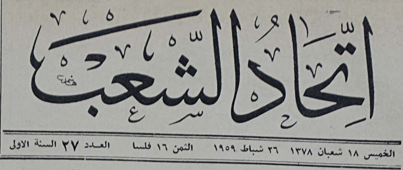 اتحاد الشعب
الخميس ١٨ شعبان ١٣٧٨ ٢٦ شباط ١٩٥٩ الثمن ١٦ فلسا العدد ٢٧ السنة الاولى